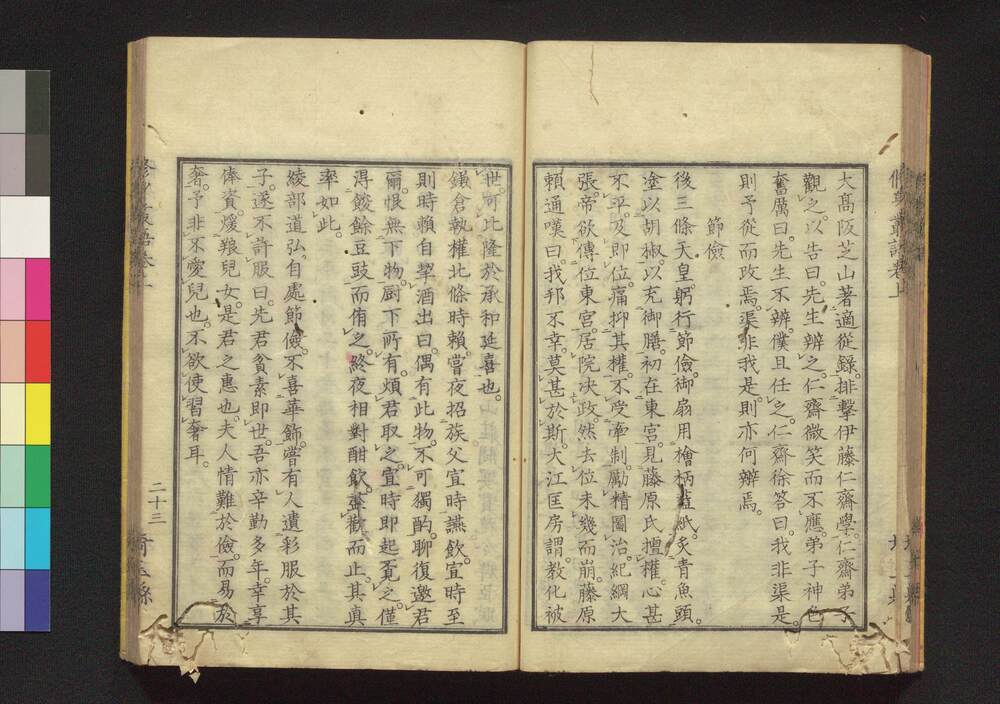 大髙阪芝山著適從録。排擊伊藤仁齋學。仁齋弟子
觀之。以告曰。先生辨之。仁齋微笑而不應。弟子神色
奮厲曰。先生不辨。僕且任之。仁齋徐答曰。我非渠是。
則予從而改焉。渠非我是。則亦何辨焉。
節儉
後三條天皇。躬行節儉。御扇用檜柄藍紙。炙青魚頭。
塗以胡椒。以充御膳。初在東宮。見藤原氏擅權。心甚
不平。及即位。痛抑其權。不受牽制。勵精圖治。紀綱大
張。帝欲傳位東宮。居院决政。然去位未幾而崩。藤原
賴通嘆曰。我邦不幸。莫甚於斯。大江匡房謂。教化被
世。何比隆於承和延喜也。
鎌倉執權北條時賴。嘗夜招族父宜時讌飲。宜時至
則時賴自挈酒出曰。偶有此物。不可獨酌。聊復邀君
爾。恨無下物。厨下所有。煩君取之。宜時即起覓之。僅
得餕餘豆豉而侑之。終夜相對酣飲。盡歡而止。其真
率如此。
綾部道弘。自處節儉。不喜華飾。嘗有人遺彩服於其
子。遂不許服曰。先君貧素即世。吾亦辛勤多年。幸享
俸資。煖粮兒女。是君之惠也。夫人情難於儉。而易於
奢。予非不愛兒也。不欲使習奢耳。
二十三